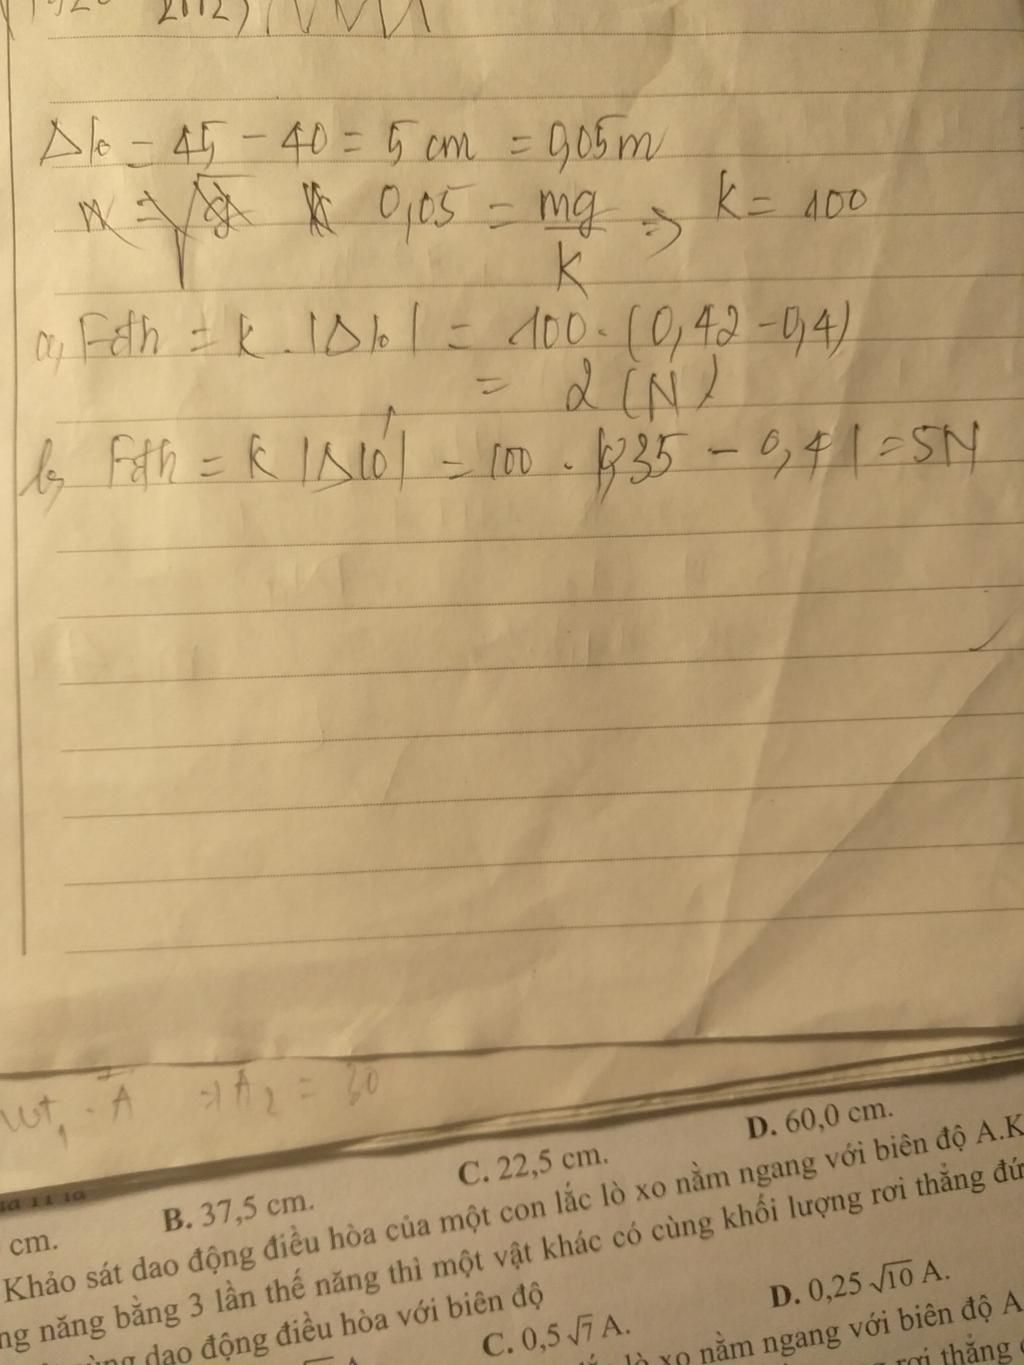 Δl₀ = 45 - 40 = 5 cm = 0,05m
0,05 = mg/k => k = 100
a, Fđh = k . |Δl₀| = 100 . (0,42 - 0,4)
= 2 (N)
b, Fđh = k |Δl₀'| = 100 . |0,35 - 0,4| = 5N
=> A₂ = 30
cm. B. 37,5 cm. C. 22,5 cm. D. 60,0 cm.
Khảo sát dao động điều hòa của một con lắc lò xo nằm ngang với biên độ A.K
ng năng bằng 3 lần thế năng thì một vật khác có cùng khối lượng rơi thẳng đứ
dao động điều hòa với biên độ
C. 0,5√7 A. D. 0,25√10 A.
lò xo nằm ngang với biên độ A
rơi thẳng